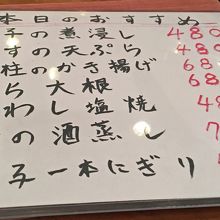 本日のおすすめ
子の煮浸し 480
すの天ぷら 480
柱のかき揚げ 680
ら大根 68
わし塩焼 48
の酒蒸し 7
子一本にぎり